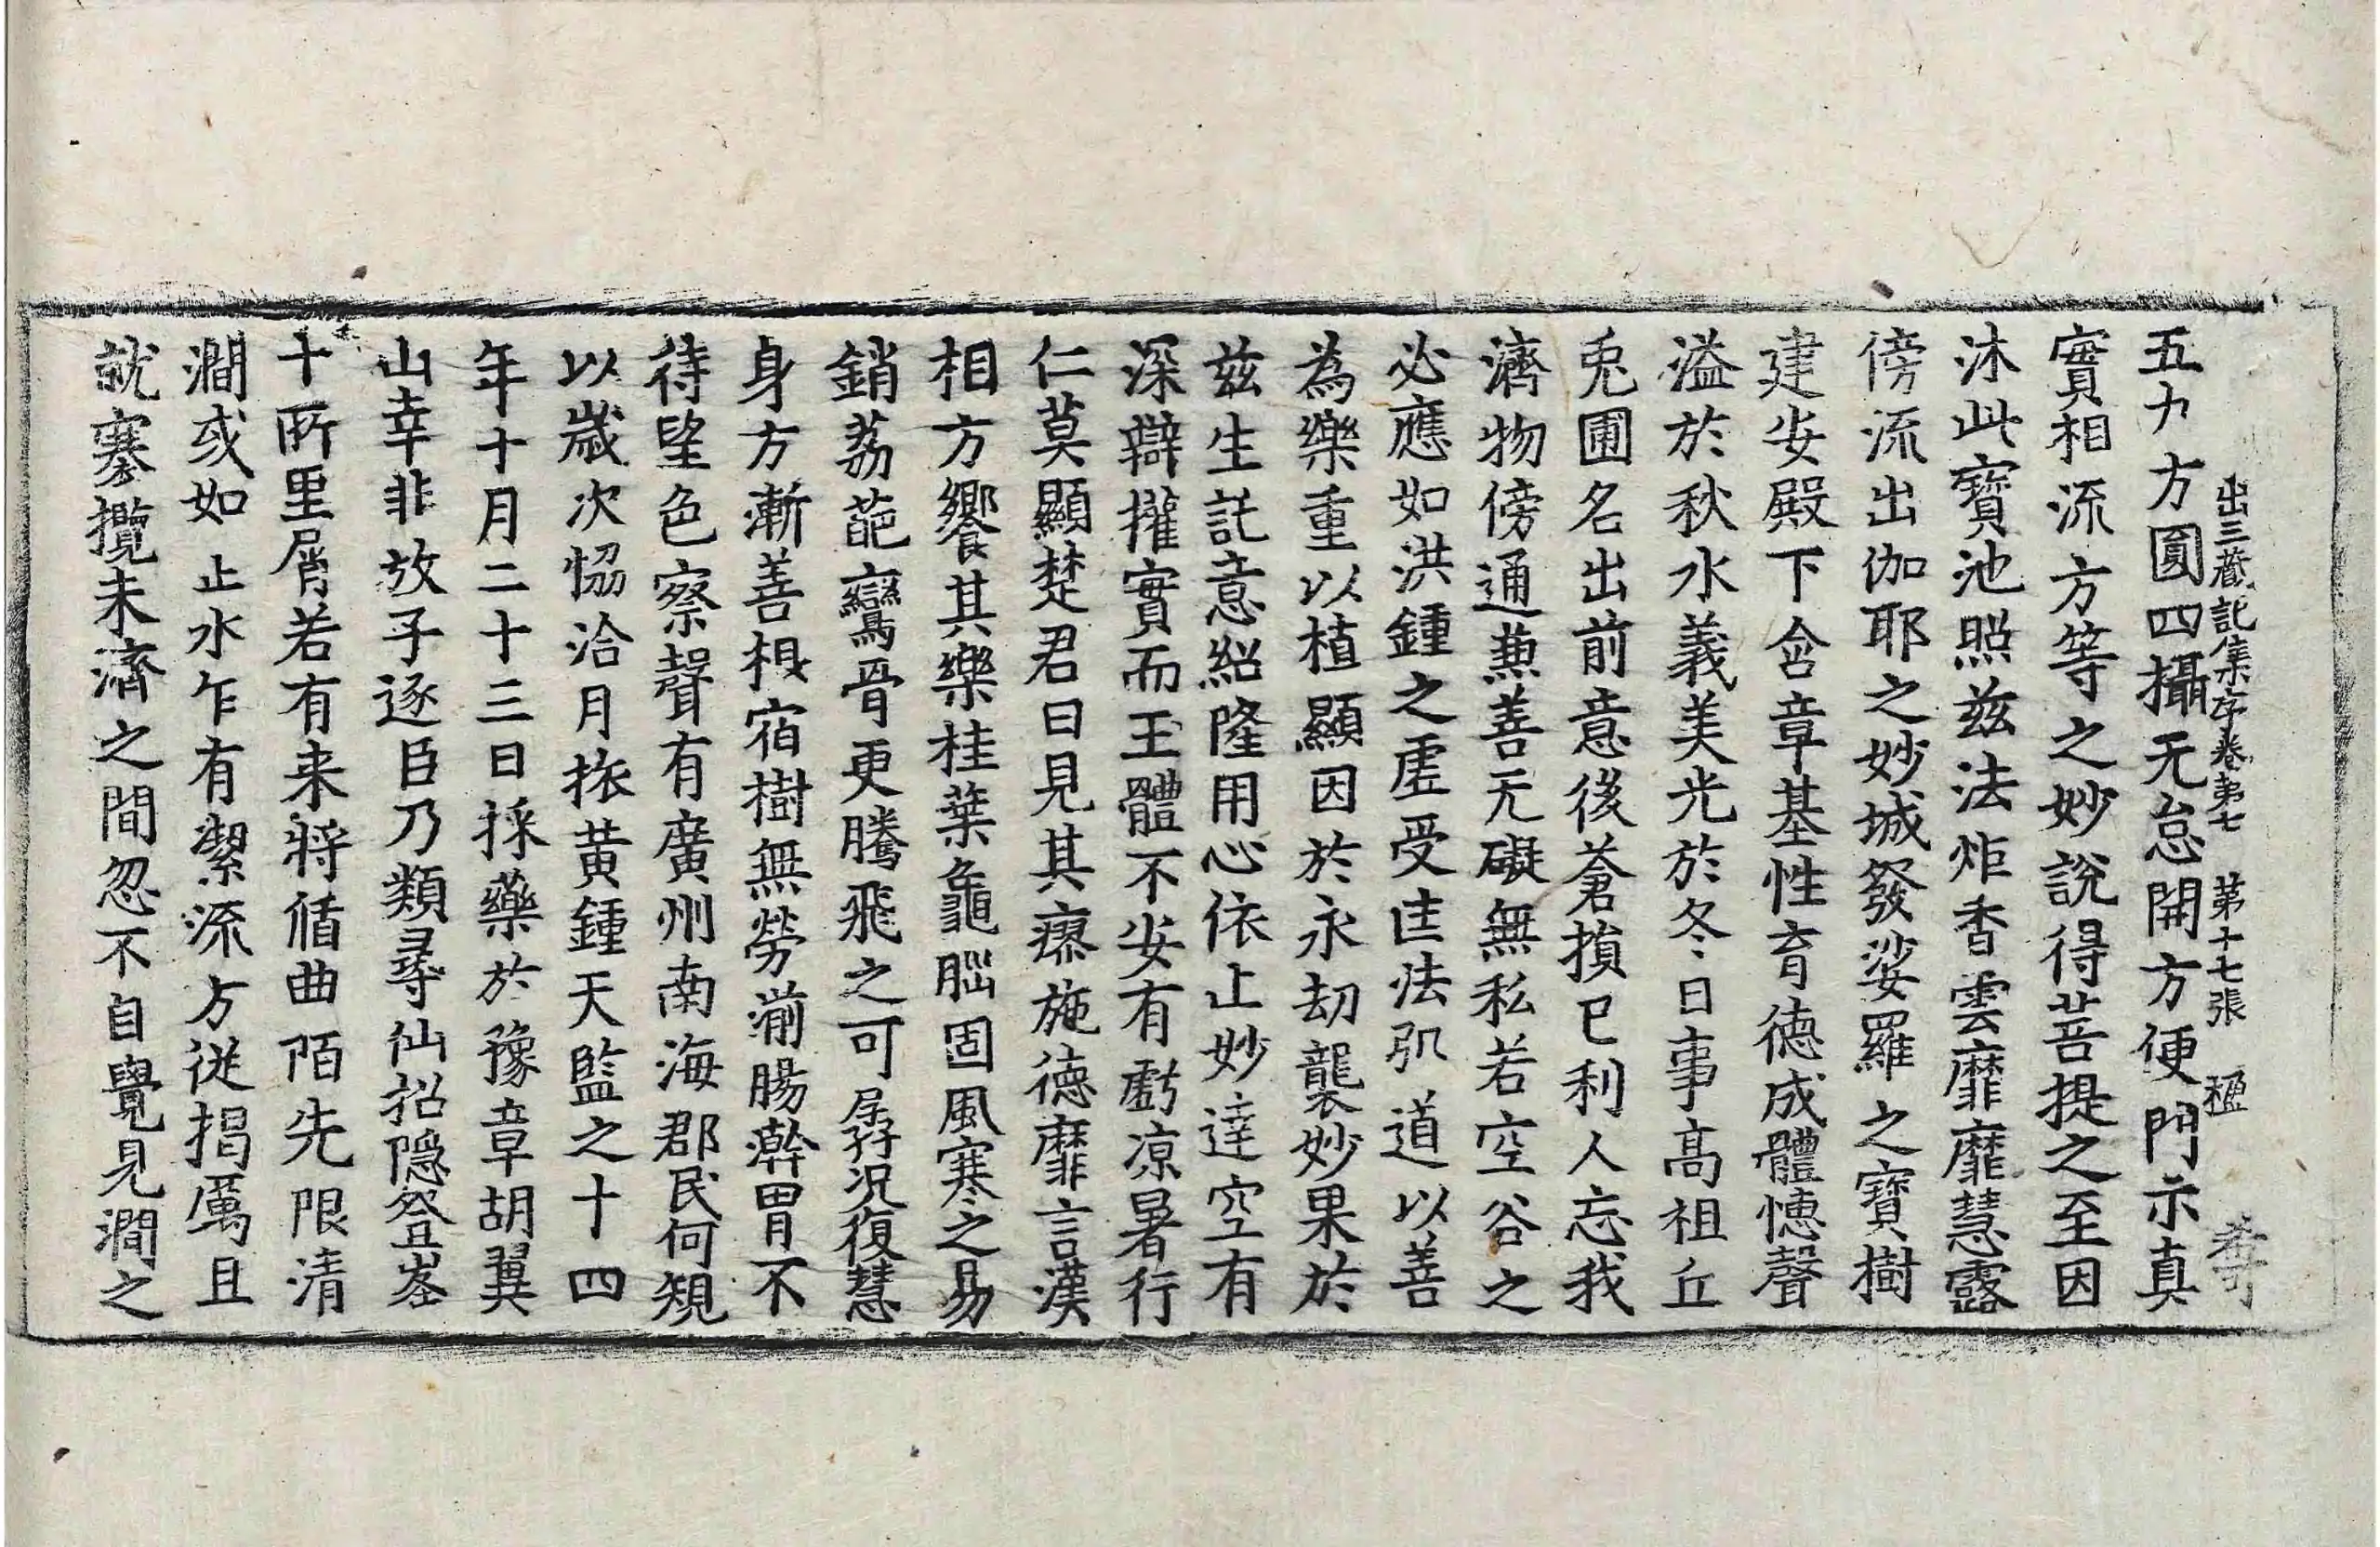 出三蔵記集序卷第七 第十七張 楹
五力方圓四攝无怠開方便門示真
實相流方等之妙說得菩提之至因
沐此寶池照玆法炬香雲靡靡慧露
傍流出伽耶之妙城發娑羅之寶樹
建安殿下含章基性育德成體憓聲
溢於秋水義美光於冬日事高祖丘
兎園名出前意後蒼損已利人忘我
濟物傍通兼善无礙無私若空谷之
必應如洪鍾之虛受匡法弘道以善
為樂重以植顯因於永劫襲妙果於
玆生託意紹隆用心依止妙達空有
深辯權實而王體不安有虧凉暑行
仁莫顯楚君曰見其瘳施德靡言漢
相方饗其樂桂葉龜腦固風寒之易
銷荔葩鸞骨更騰飛之可孱況復慧
身方漸善根宿樹無勞湔腸澣胃不
待望色察聲有廣州南海郡民何規
以歲次恊洽月旅黃鍾天監之十四
年十月二十三日採藥於豫章胡翼
山幸非放子逐臣乃類尋仙招隱登峯
十所里屑若有来將循曲陌先限清
澗或如止水乍有潔流方從揭厲且
就褰攬未濟之間忽不自覺見澗之